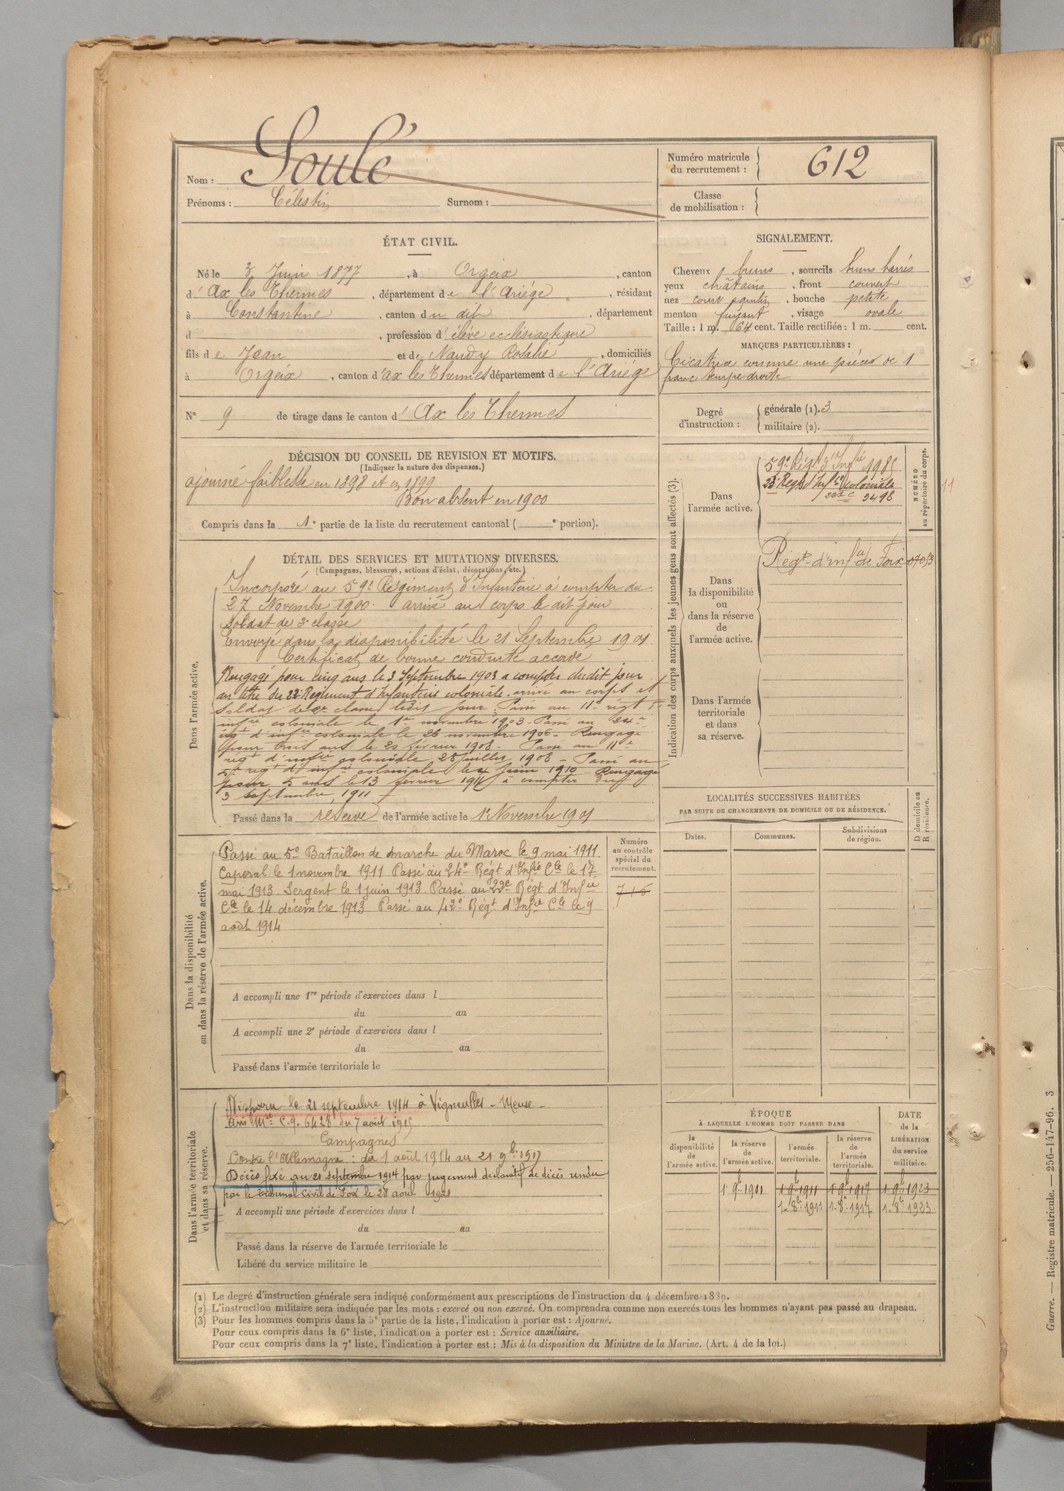 Nom : Soulé
Prénoms : Célestin Surnom :
Numéro matricule du recrutement : 612
Classe de mobilisation :
ÉTAT CIVIL.
Né le 3 Juin 1877, à Orgeix, canton
d' Ax les Thermes, département de l'Ariège, résidant
à Constantine, canton du dit, département
d , profession d'élève ecclésiastique
fils de Jean et de Naudy Rosalie, domiciliés
à Orgeix, canton d'Ax les Thermes département de l'Ariège
N° 9 de tirage dans le canton d' Ax les Thermes
SIGNALEMENT.
Cheveux bruns, sourcils bruns
yeux châtains, front couvert
nez court, bouche petite
menton fuyant, visage ovale
Taille : 1 m. 64 cent. Taille rectifiée : 1 m. cent.
MARQUES PARTICULIÈRES :
Cicatrice comme une pièce de 1
franc tempe droite
Degré d'instruction : générale (1). 3
militaire (2).
DÉCISION DU CONSEIL DE REVISION ET MOTIFS.
(Indiquer la nature des dispenses.)
ajourné faiblesse en 1898 et en 1899
Bon absent en 1900
Compris dans la 1e partie de la liste du recrutement cantonal ( e portion).
DÉTAIL DES SERVICES ET MUTATIONS DIVERSES.
(Campagnes, blessures, actions d'éclat, décorations, etc.)
Dans l'armée active.
Incorporé au 59e Régiment d'Infanterie à compter du
27 Novembre 1900. arrivé au corps le dit jour
Soldat de 2e classe
Envoyé dans la disponibilité le 21 Septembre 1901
Certificat de bonne conduite accordé
Rengagé pour cinq ans le 3 Septembre 1903 à compter dudit jour
au titre du 22e Régiment d'Infanterie coloniale. arrivé au corps et
soldat de 2e classe ledit jour Passé au 11e régt d'
infrie coloniale le 1er novembre 1903. Passé au
régt d'infrie coloniale le 26 novembre 1906. Rengagé
pour trois ans le 20 février 1908. Passé au 11e
régt d'infrie coloniale 28 juillet 1908 - Passé au
régt d'infrie coloniale le Juin 1910 Rengagé
pour 2 ans le 13 février 1911 à compter du
3 septembre 1911
Passé dans la réserve de l'armée active le 1er Novembre 1901
Indication des corps auxquels les jeunes gens sont affectés (3).
NUMÉRO au répertoire du corps.
Dans l'armée active.
59e Régt d'Infrie 1985
22e Régt d'Infrie coloniale
2498
11
Dans la disponibilité ou dans la réserve de l'armée active.
Régt d'infrie de Foix
Dans l'armée territoriale et dans sa réserve.
LOCALITÉS SUCCESSIVES HABITÉES
PAR SUITE DE CHANGEMENTS DE DOMICILE OU DE RÉSIDENCE.
Dates. Communes. Subdivisions de région. D domicile ou R résidence.
Dans la disponibilité ou dans la réserve de l'armée active.
Numéro au contrôle spécial du recrutement.
716
Passé au 5e Bataillon de marche du Maroc le 9 mai 1911
Caporal le 1 novembre 1911 Passé au 24e Régt d'Infie Cle le 17
mai 1913. Sergent le 1 juin 1913. Passé au 22e Régt d'Infie
Cle le 14 décembre 1913 Passé au 42e Régt d'Infie Cle le 9
août 1914
A accompli une 1re période d'exercices dans l
du au
A accompli une 2e période d'exercices dans l
du au
Passé dans l'armée territoriale le
Dans l'armée territoriale et dans sa réserve.
Disparu le 21 septembre 1914 à Vigneulles - Meuse -
Avis Mel C.9. 6428 du 7 août 1915
Campagnes
Contre l'Allemagne : du 1 août 1914 au 21 9bre 1917
Décès fixé au 21 septembre 1914 par jugement déclaratif de décès rendu
par le tribunal civil de Foix le 28 août 1921
A accompli une période d'exercices dans l
du au
Passé dans la réserve de l'armée territoriale le
Libéré du service militaire le
ÉPOQUE
À LAQUELLE L'HOMME DOIT PASSER DANS
la disponibilité de l'armée active. la réserve de l'armée active. l'armée territoriale. la réserve de l'armée territoriale.
DATE de la LIBÉRATION du service militaire.
1 9bre 1901 1 9bre 1911 1 9bre 1917 1 9bre 1923
1 8bre 1911 1 8bre 1917 1 8bre 1923
(1) Le degré d'instruction générale sera indiqué conformément aux prescriptions de l'instruction du 4 décembre 1889.
(2) L'instruction militaire sera indiquée par les mots : exercé ou non exercé. On comprendra comme non exercés tous les hommes n'ayant pas passé au drapeau.
(3) Pour les hommes compris dans la 5e partie de la liste, l'indication à porter est : Ajourné.
Pour ceux compris dans la 6e liste, l'indication à porter est : Service auxiliaire.
Pour ceux compris dans la 7e liste, l'indication à porter est : Mis à la disposition du Ministre de la Marine. (Art. 4 de la loi.)
Guerre. — Registre matricule. — 256-147-96. 3